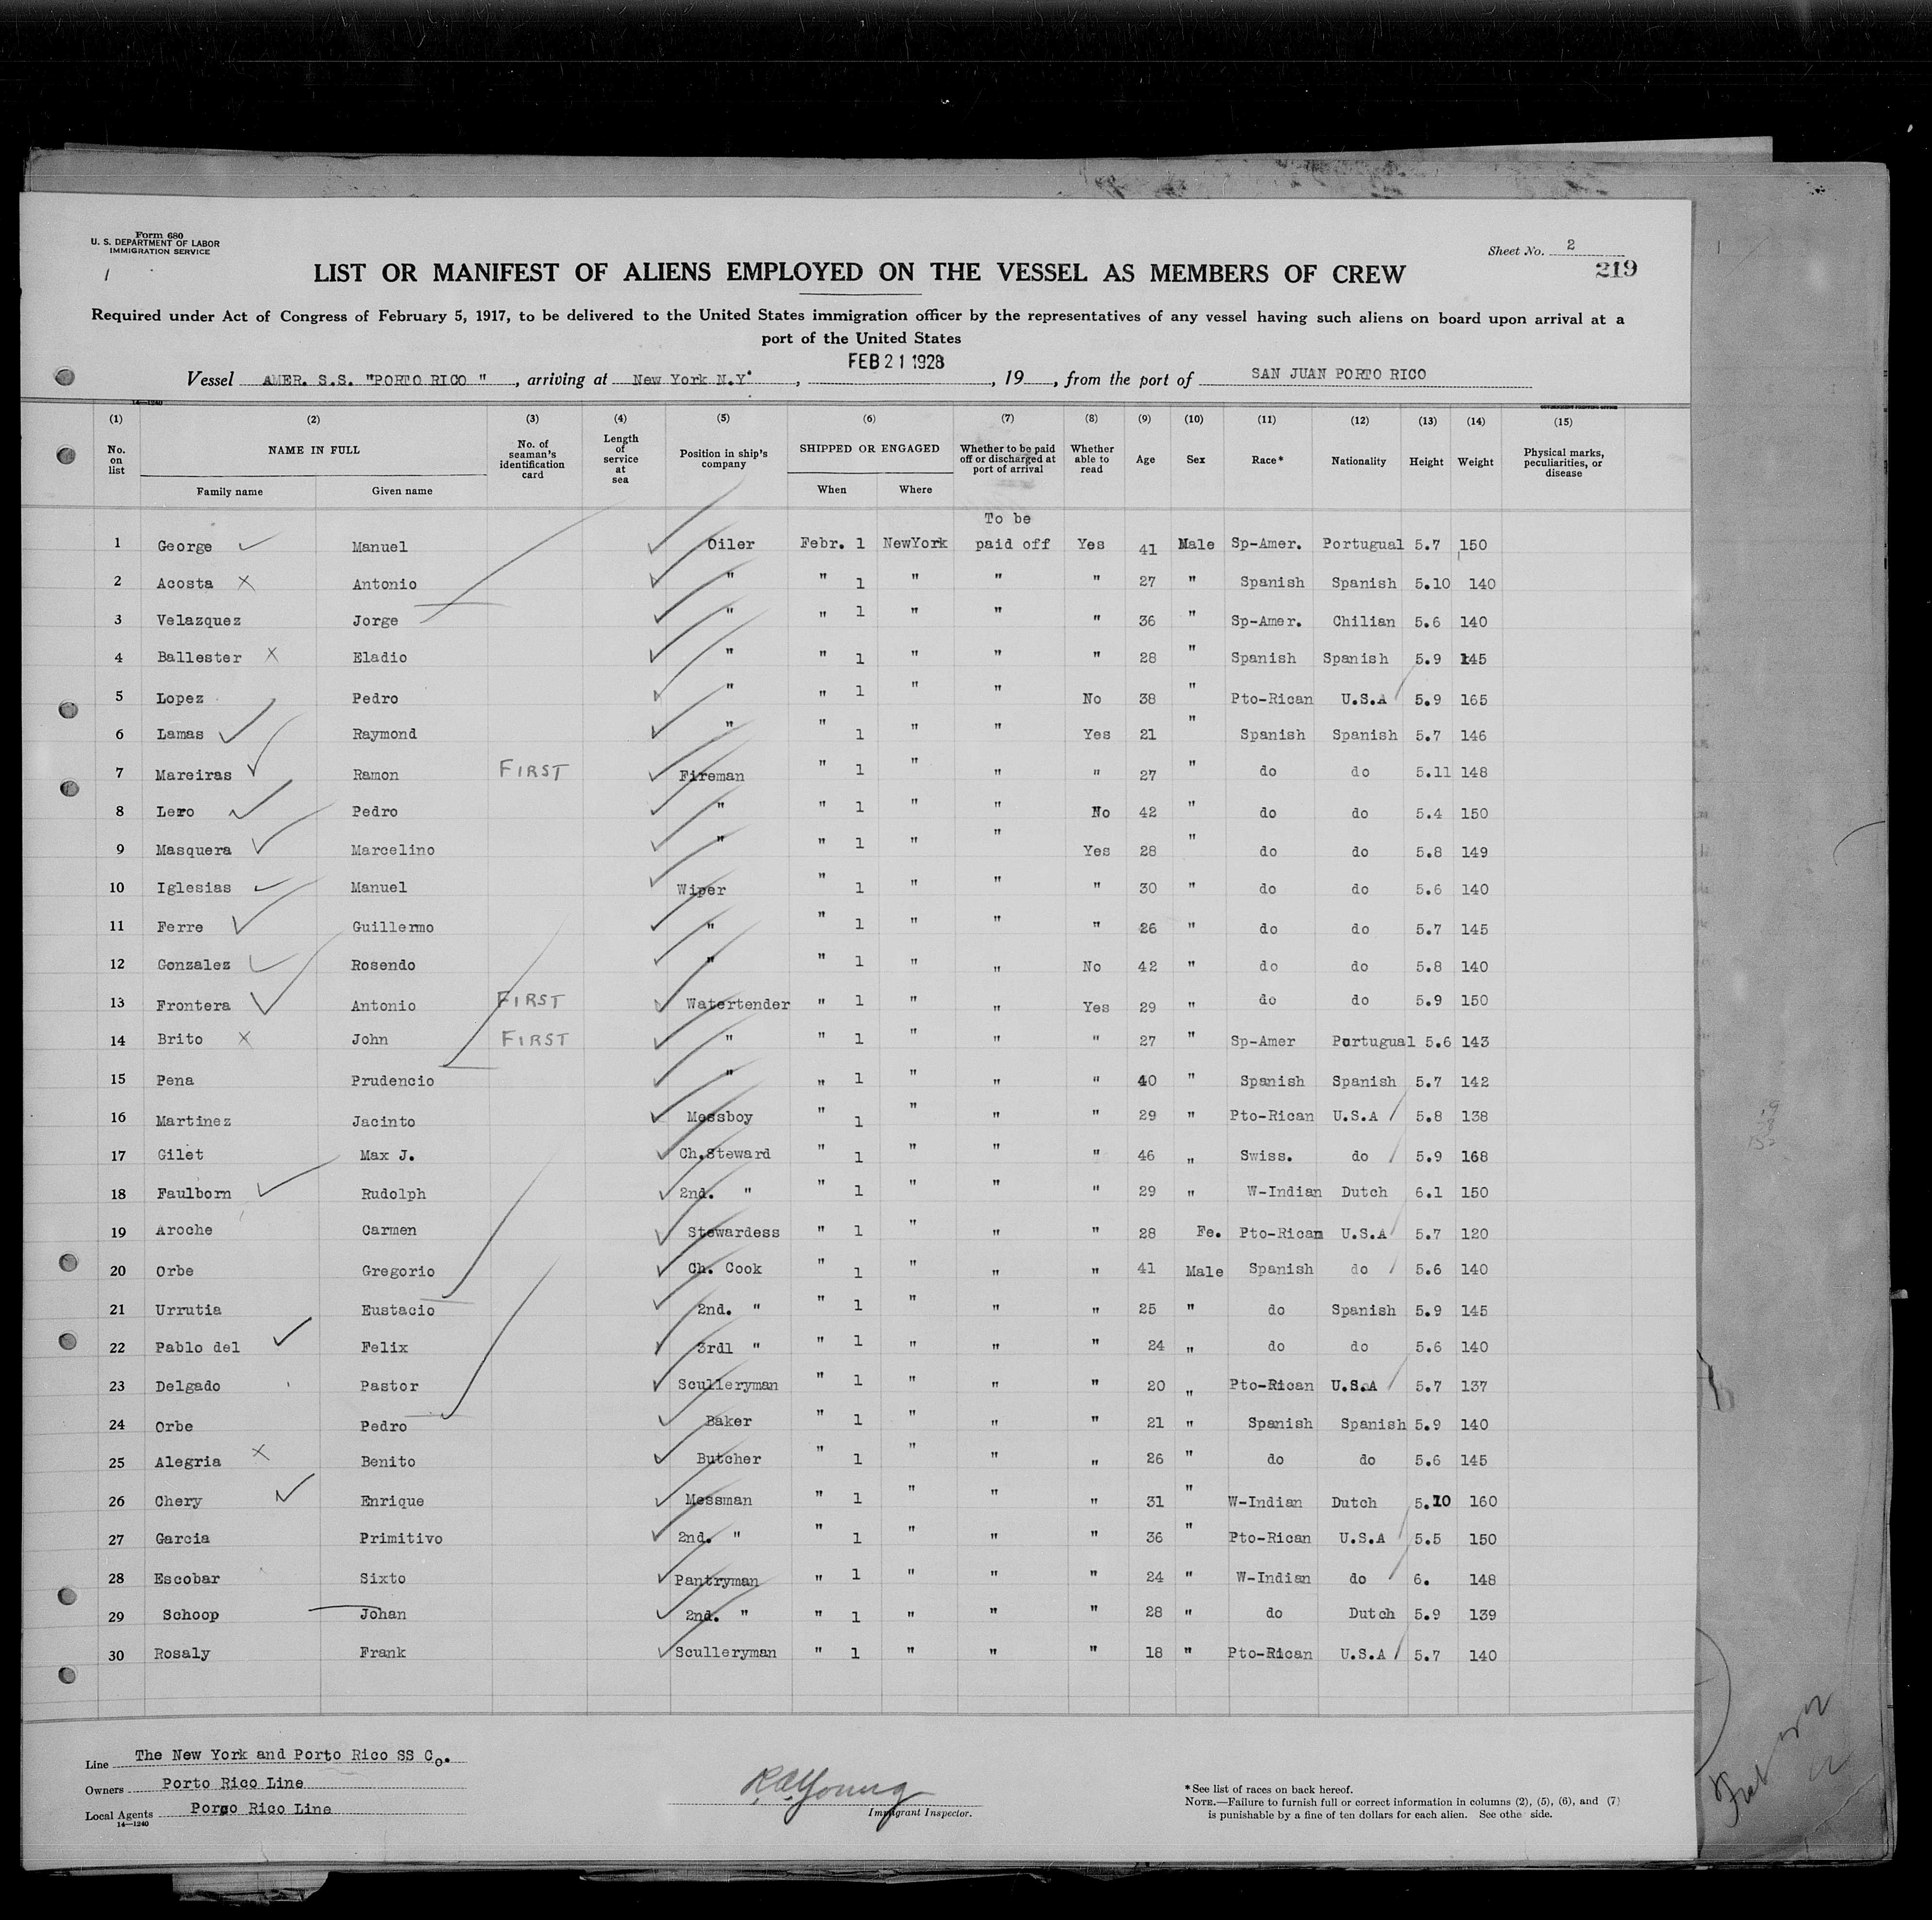 Form 680
U. S. DEPARTMENT OF LABOR
IMMIGRATION SERVICE
Sheet No. 2
219
LIST OR MANIFEST OF ALIENS EMPLOYED ON THE VESSEL AS MEMBERS OF CREW
Required under Act of Congress of February 5, 1917, to be delivered to the United States immigration officer by the representatives of any vessel having such aliens on board upon arrival at a
port of the United States
Vessel AMER. S.S. "PORTO RICO ", arriving at New York N.Y., FEB 21 1928, 19, from the port of SAN JUAN PORTO RICO
14—1240
GOVERNMENT PRINTING OFFICE
(1) (2) (3) (4) (5) (6) (7) (8) (9) (10) (11) (12) (13) (14) (15)
No. on list NAME IN FULL No. of seaman's identification card Length of service at sea Position in ship's company SHIPPED OR ENGAGED Whether to be paid off or discharged at port of arrival Whether able to read Age Sex Race* Nationality Height Weight Physical marks, peculiarities, or disease
Family name Given name When Where
To be
1 George Manuel Oiler Febr. 1 NewYork paid off Yes 41 Male Sp-Amer. Portugual 5.7 150
2 Acosta X Antonio " " 1 " " " 27 " Spanish Spanish 5.10 140
3 Velazquez Jorge " " 1 " " " 36 " Sp-Amer. Chilian 5.6 140
4 Ballester X Eladio " " 1 " " " 28 " Spanish Spanish 5.9 145
5 Lopez Pedro " " 1 " " No 38 " Pto-Rican U.S.A 5.9 165
6 Lamas Raymond " " 1 " " Yes 21 " Spanish Spanish 5.7 146
7 Mareiras Ramon FIRST Fireman " 1 " " " 27 " do do 5.11 148
8 Lero Pedro " " 1 " " No 42 " do do 5.4 150
9 Masquera Marcelino " " 1 " " Yes 28 " do do 5.8 149
10 Iglesias Manuel Wiper " 1 " " " 30 " do do 5.6 140
11 Ferre Guillermo " " 1 " " " 26 " do do 5.7 145
12 Gonzalez Rosendo " " 1 " " No 42 " do do 5.8 140
13 Frontera Antonio FIRST Watertender " 1 " " Yes 29 " do do 5.9 150
14 Brito X John FIRST " " 1 " " " 27 " Sp-Amer Portugual 5.6 143
15 Pena Prudencio " " 1 " " " 40 " Spanish Spanish 5.7 142
16 Martinez Jacinto Messboy " 1 " " " 29 " Pto-Rican U.S.A 5.8 138
17 Gilet Max J. Ch.Steward " 1 " " " 46 " Swiss. do 5.9 168
18 Faulborn Rudolph 2nd. " " 1 " " " 29 " W-Indian Dutch 6.1 150
19 Aroche Carmen Stewardess " 1 " " " 28 Fe. Pto-Rican U.S.A 5.7 120
20 Orbe Gregorio Ch. Cook " 1 " " " 41 Male Spanish do 5.6 140
21 Urrutia Eustacio 2nd. " " 1 " " " 25 " do Spanish 5.9 145
22 Pablo del Felix 3rdl " " 1 " " " 24 " do do 5.6 140
23 Delgado Pastor Sculleryman " 1 " " " 20 " Pto-Rican U.S.A 5.7 137
24 Orbe Pedro Baker " 1 " " " 21 " Spanish Spanish 5.9 140
25 Alegria X Benito Butcher " 1 " " " 26 " do do 5.6 145
26 Chery Enrique Messman " 1 " " " 31 " W-Indian Dutch 5.10 160
27 Garcia Primitivo 2nd. " " 1 " " " 36 " Pto-Rican U.S.A 5.5 150
28 Escobar Sixto Pantryman " 1 " " " 24 " W-Indian do 6. 148
29 Schoop Johan 2nd. " " 1 " " " 28 " do Dutch 5.9 139
30 Rosaly Frank Sculleryman " 1 " " " 18 " Pto-Rican U.S.A 5.7 140
Line The New York and Porto Rico SS Co.
Owners Porto Rico Line
Local Agents Porgo Rico Line
14—1240
R.A. Young
Immigrant Inspector.
*See list of races on back hereof.
NOTE.—Failure to furnish full or correct information in columns (2), (5), (6), and (7)
is punishable by a fine of ten dollars for each alien. See othe side.